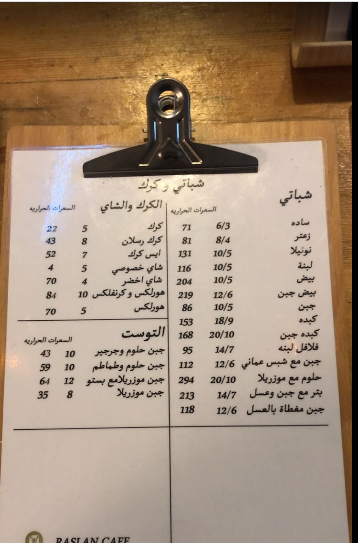 شباتي و كرك
شباتي
السعرات الحراريه
ساده 6/3 71
زعتر 8/4 81
نوتيلا 10/5 131
لبنة 10/5 116
بيض 10/5 204
بيض جبن 12/6 219
جبن 10/5 86
كبده 18/9 153
كبده جبن 20/10 168
فلافل لبنه 14/7 95
جبن مع شبس عماني 12/6 112
حلوم مع موزريلا 20/10 294
بتر مع جبن وعسل 14/7 213
جبن مغطاة بالعسل 12/6 118
الكرك والشاي
السعرات الحراريه
كرك 5 22
كرك رسلان 8 43
ايس كرك 7 52
شاي خصوصي 5 4
شاي اخضر 4 70
هورلكس و كرنفلكس 10 84
هورلكس 5 70
التوست
السعرات الحراريه
جبن حلوم وجرجير 10 43
جبن حلوم وطماطم 10 59
جبن موزريلامع بستو 12 64
جبن موزريلا 8 35
RASLAN CAFE